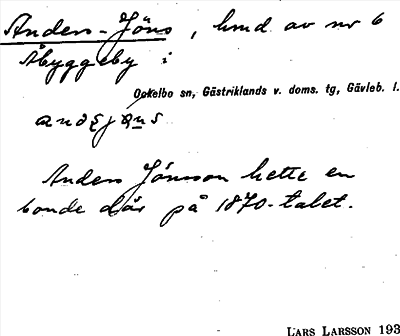 Anders-Jöns, hmd av nr 6
Åbyggeby i
Ockelbo sn, Gästriklands v. doms. tg, Gävleb. l.
Anders Jönsson hette en
bonde där på 1870-talet.
LARS LARSSON 193